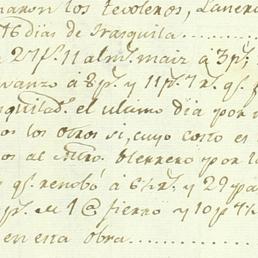 maron los tecoleros, Lanero
16 dias de trasquila
27 ps. 11 alms. maiz à 3 ps.
avanzo à 8 ps. y 11 ps. 7 rs. qe.
el ultimo dia por
os los otros si, cuyo costo es
os al Mtro. Herrero por l
qe. renobó á 6½ rs. y 29 pa
ps. de 1 @ fierro y 10 ps 4½
en esta obra